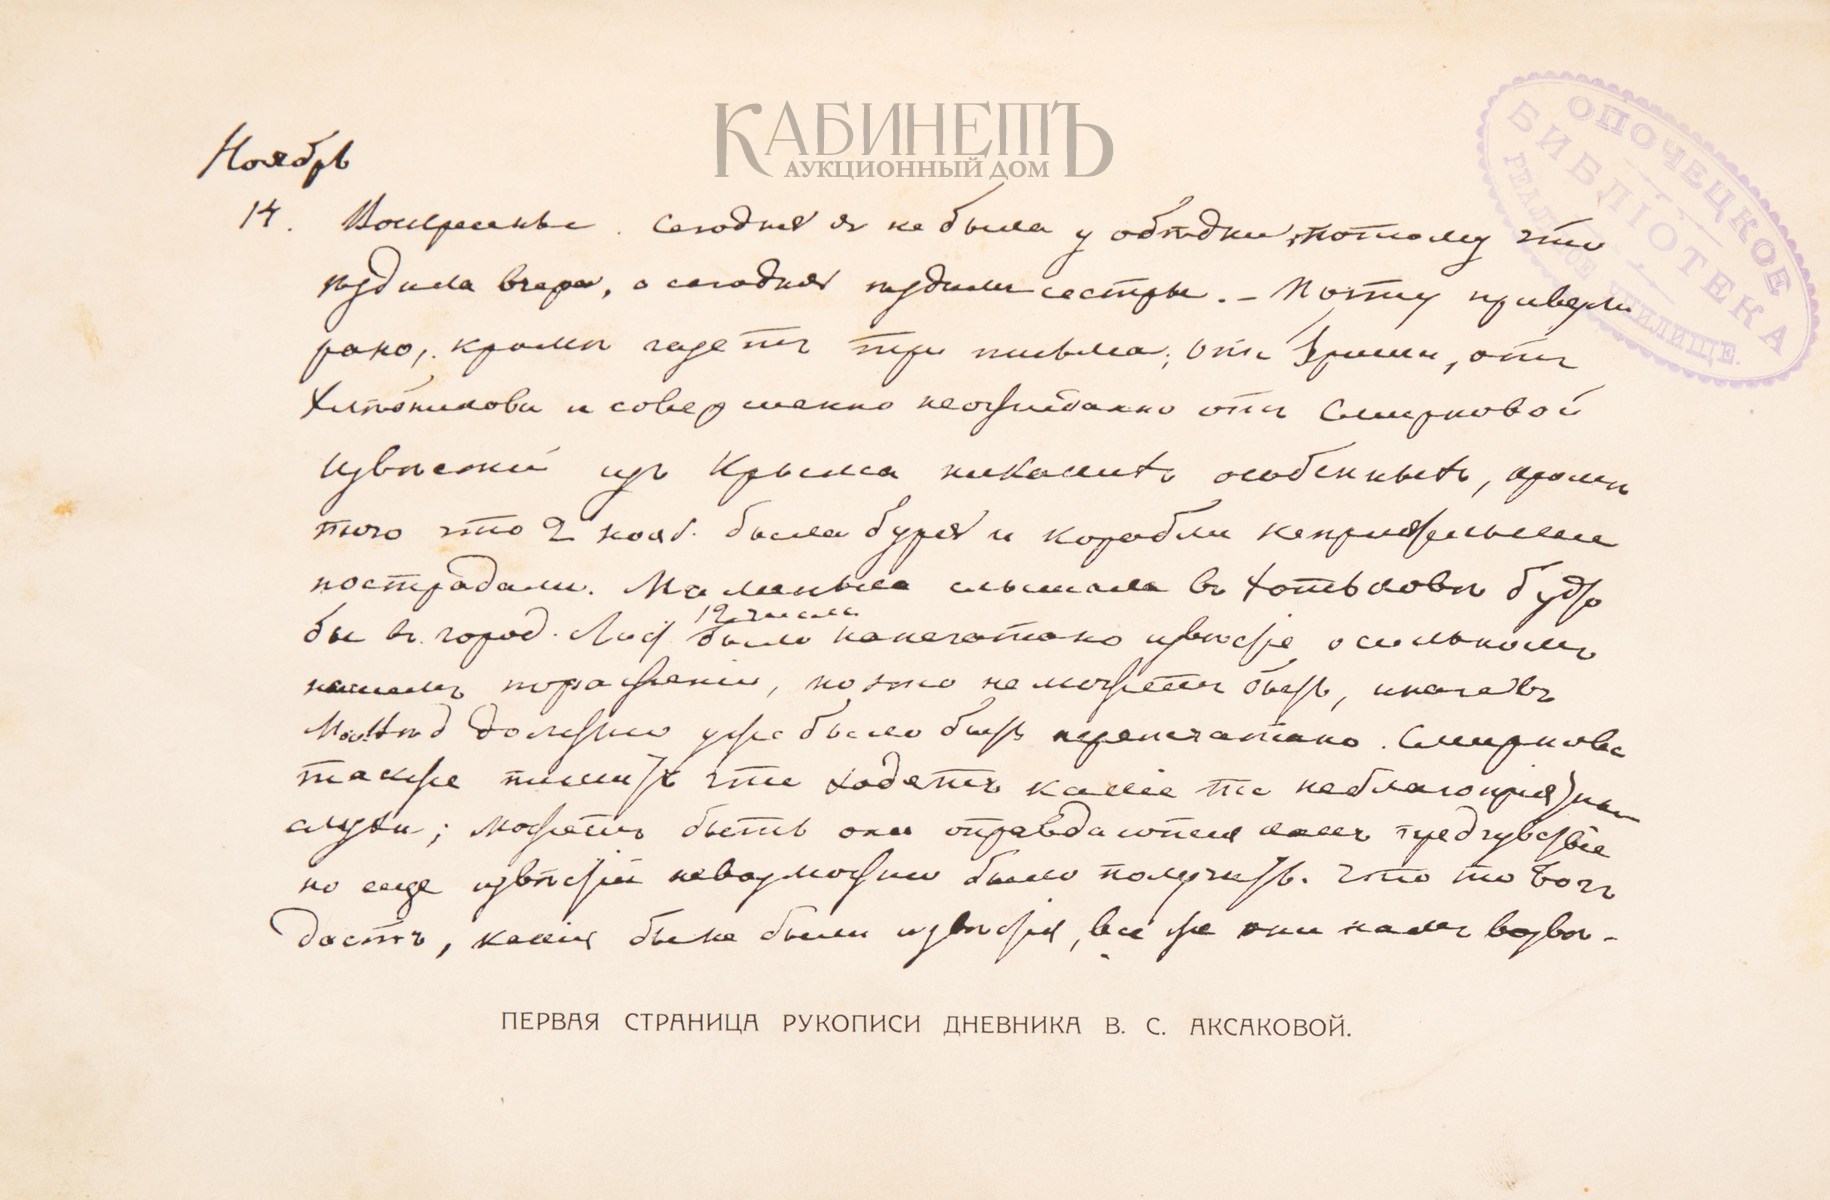 КАБИНЕТЪ
АУКЦИОННЫЙ ДОМ
ОПОЧЕЦКОЕ
БИБЛІОТЕКА
РЕАЛЬНОЕ УЧИЛИЩЕ.
Ноябрь
14. Воскресенье. Сегодня я не была у обѣдни, потому что
ѣздила вчера, а сегодня ѣздили сестры. – Почту привезли
рано, кромѣ газетъ три письма: отъ Гриши, отъ
Хлѣбникова и совершенно неожиданно отъ Смирновой
Извѣстій изъ Крыма никакихъ особенныхъ, кромѣ
того что 2 нояб. была буря и корабли непріятельскіе
пострадали. Маменька слышала въ Хотьковѣ будто
бы въ город. 12 числа было напечатано извѣстіе о сильномъ
нашемъ пораженіи, но это не можетъ быть, иначе въ
Моск. Вѣд должно уже было быть перепечатано. Смирнова
также пишетъ что ходятъ какіе то неблагопріятные
слухи; можетъ быть они оправдаются какъ предчувствіе
но еще извѣстій невозможно было получить. Что то Богъ
дастъ, какія бы не были извѣстія, все же они намъ возвѣ-
ПЕРВАЯ СТРАНИЦА РУКОПИСИ ДНЕВНИКА В. С. АКСАКОВОЙ.